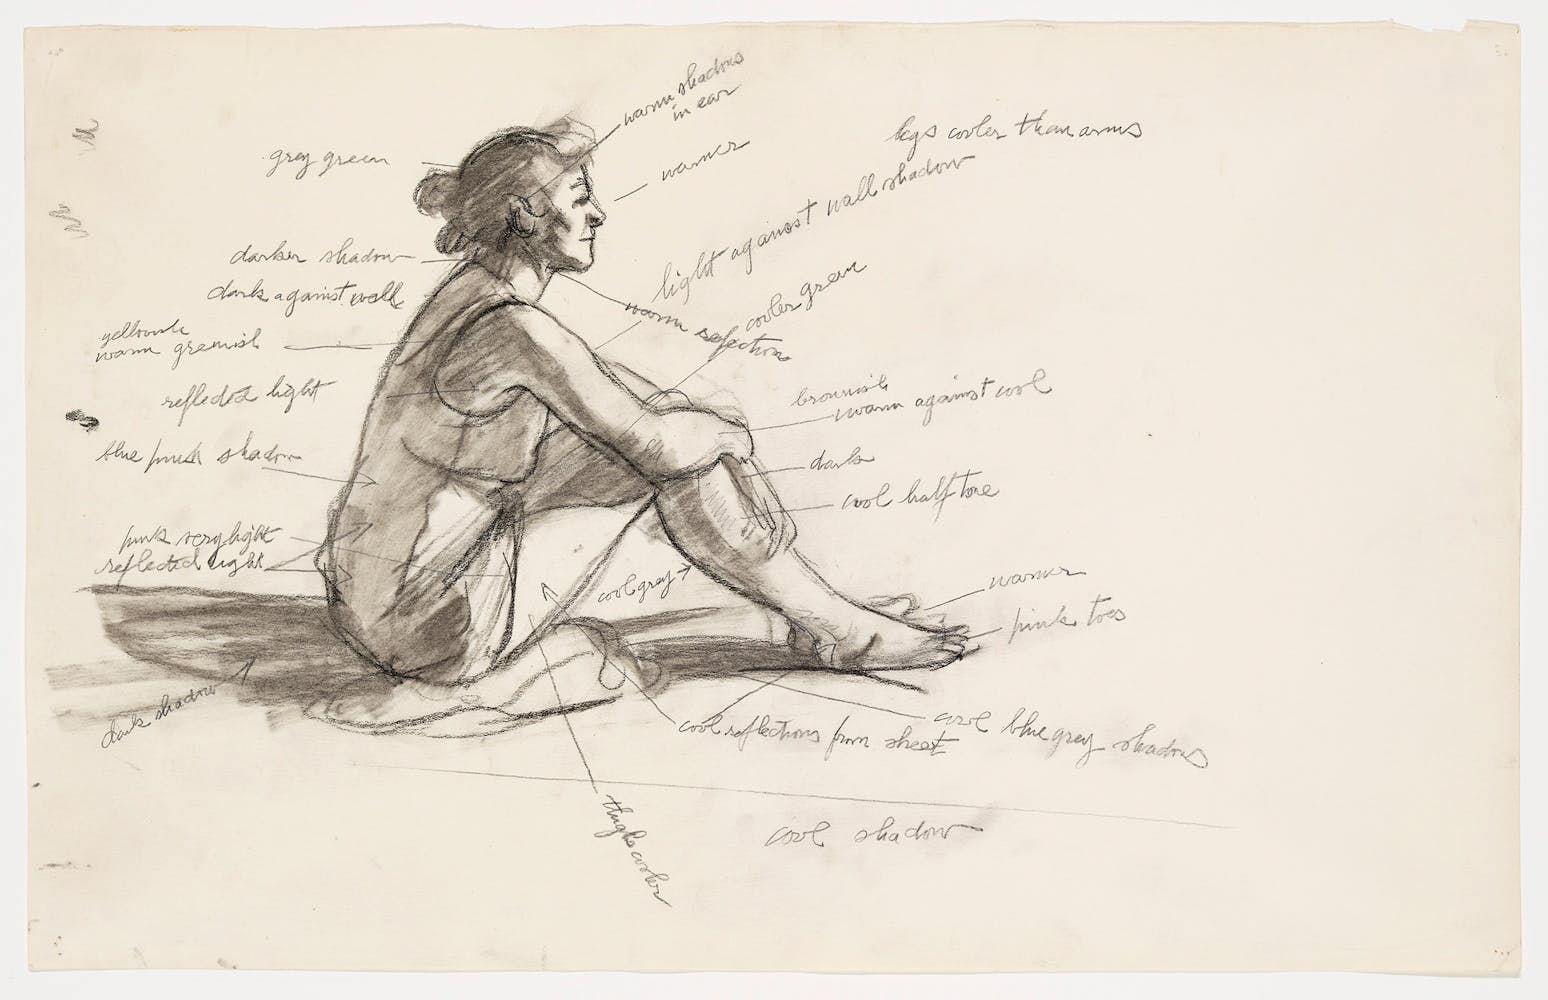 warm shadows
in ear
grey green
warmer
legs cooler than arms
light against wall shadow
darker shadow
dark against wall
cooler green
warm reflections
yellowish
warm greenish
reflected light
brownish
warm against cool
blue pink shadow
dark
cool halftone
pink very light
reflected light
cool gray
warmer
pink toes
dark shadow
cool reflections from sheet
cool blue grey shadows
thighs cooler
cool shadow